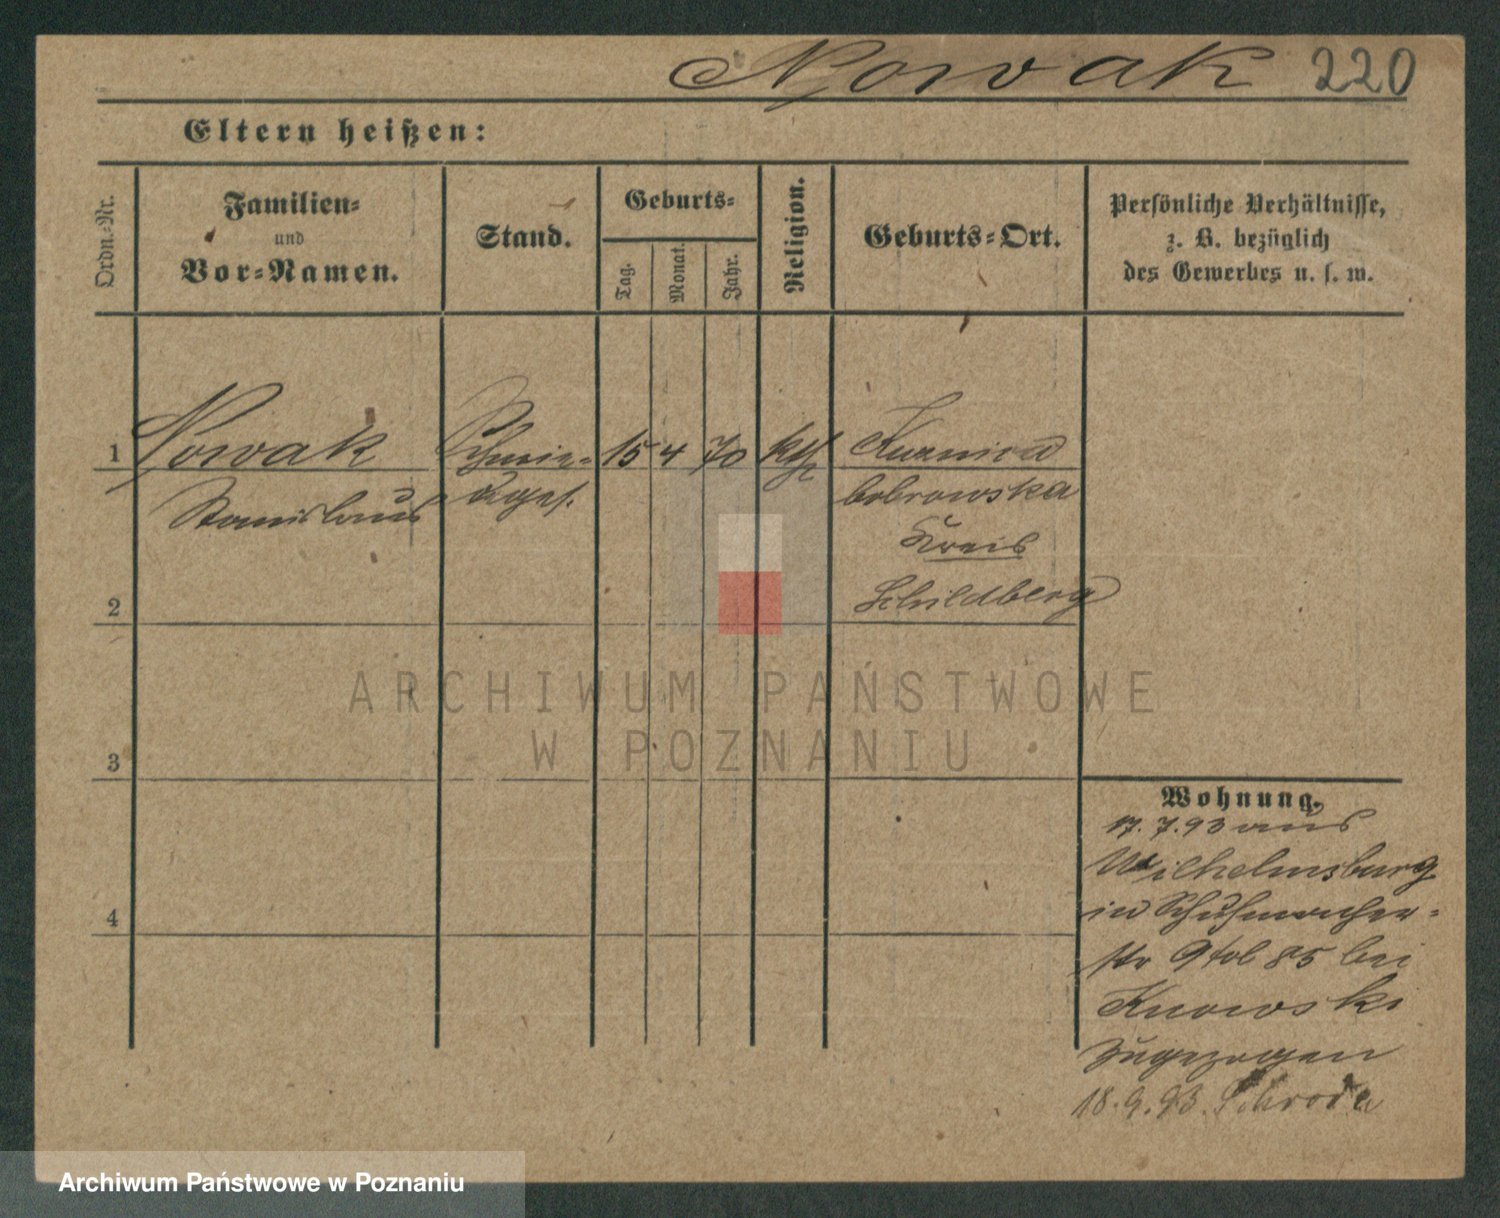 Nowak 220
Eltern heißen:
Ordn.-Nr.
Familien-
und
Vor-Namen.
Stand.
Geburts-
Tag.
Monat.
Jahr.
Religion.
Geburts-Ort.
Persönliche Verhältnisse,
z. B. bezüglich
des Gewerbes u. s. w.
1 Nowak Schmie- 15 4 70 kth Kuznica
Stanislaus dges. bobrowska
Kreis
Schildberg
2
ARCHIWUM PAŃSTWOWE
W POZNANIU
3
Wohnung.
17.7.93 aus
Wilhelmsburg
in Schuhmacher-
str 9 tol 85 bei
Knowski
zugezogen
18.9.93. Schroda
4
Archiwum Państwowe w Poznaniu